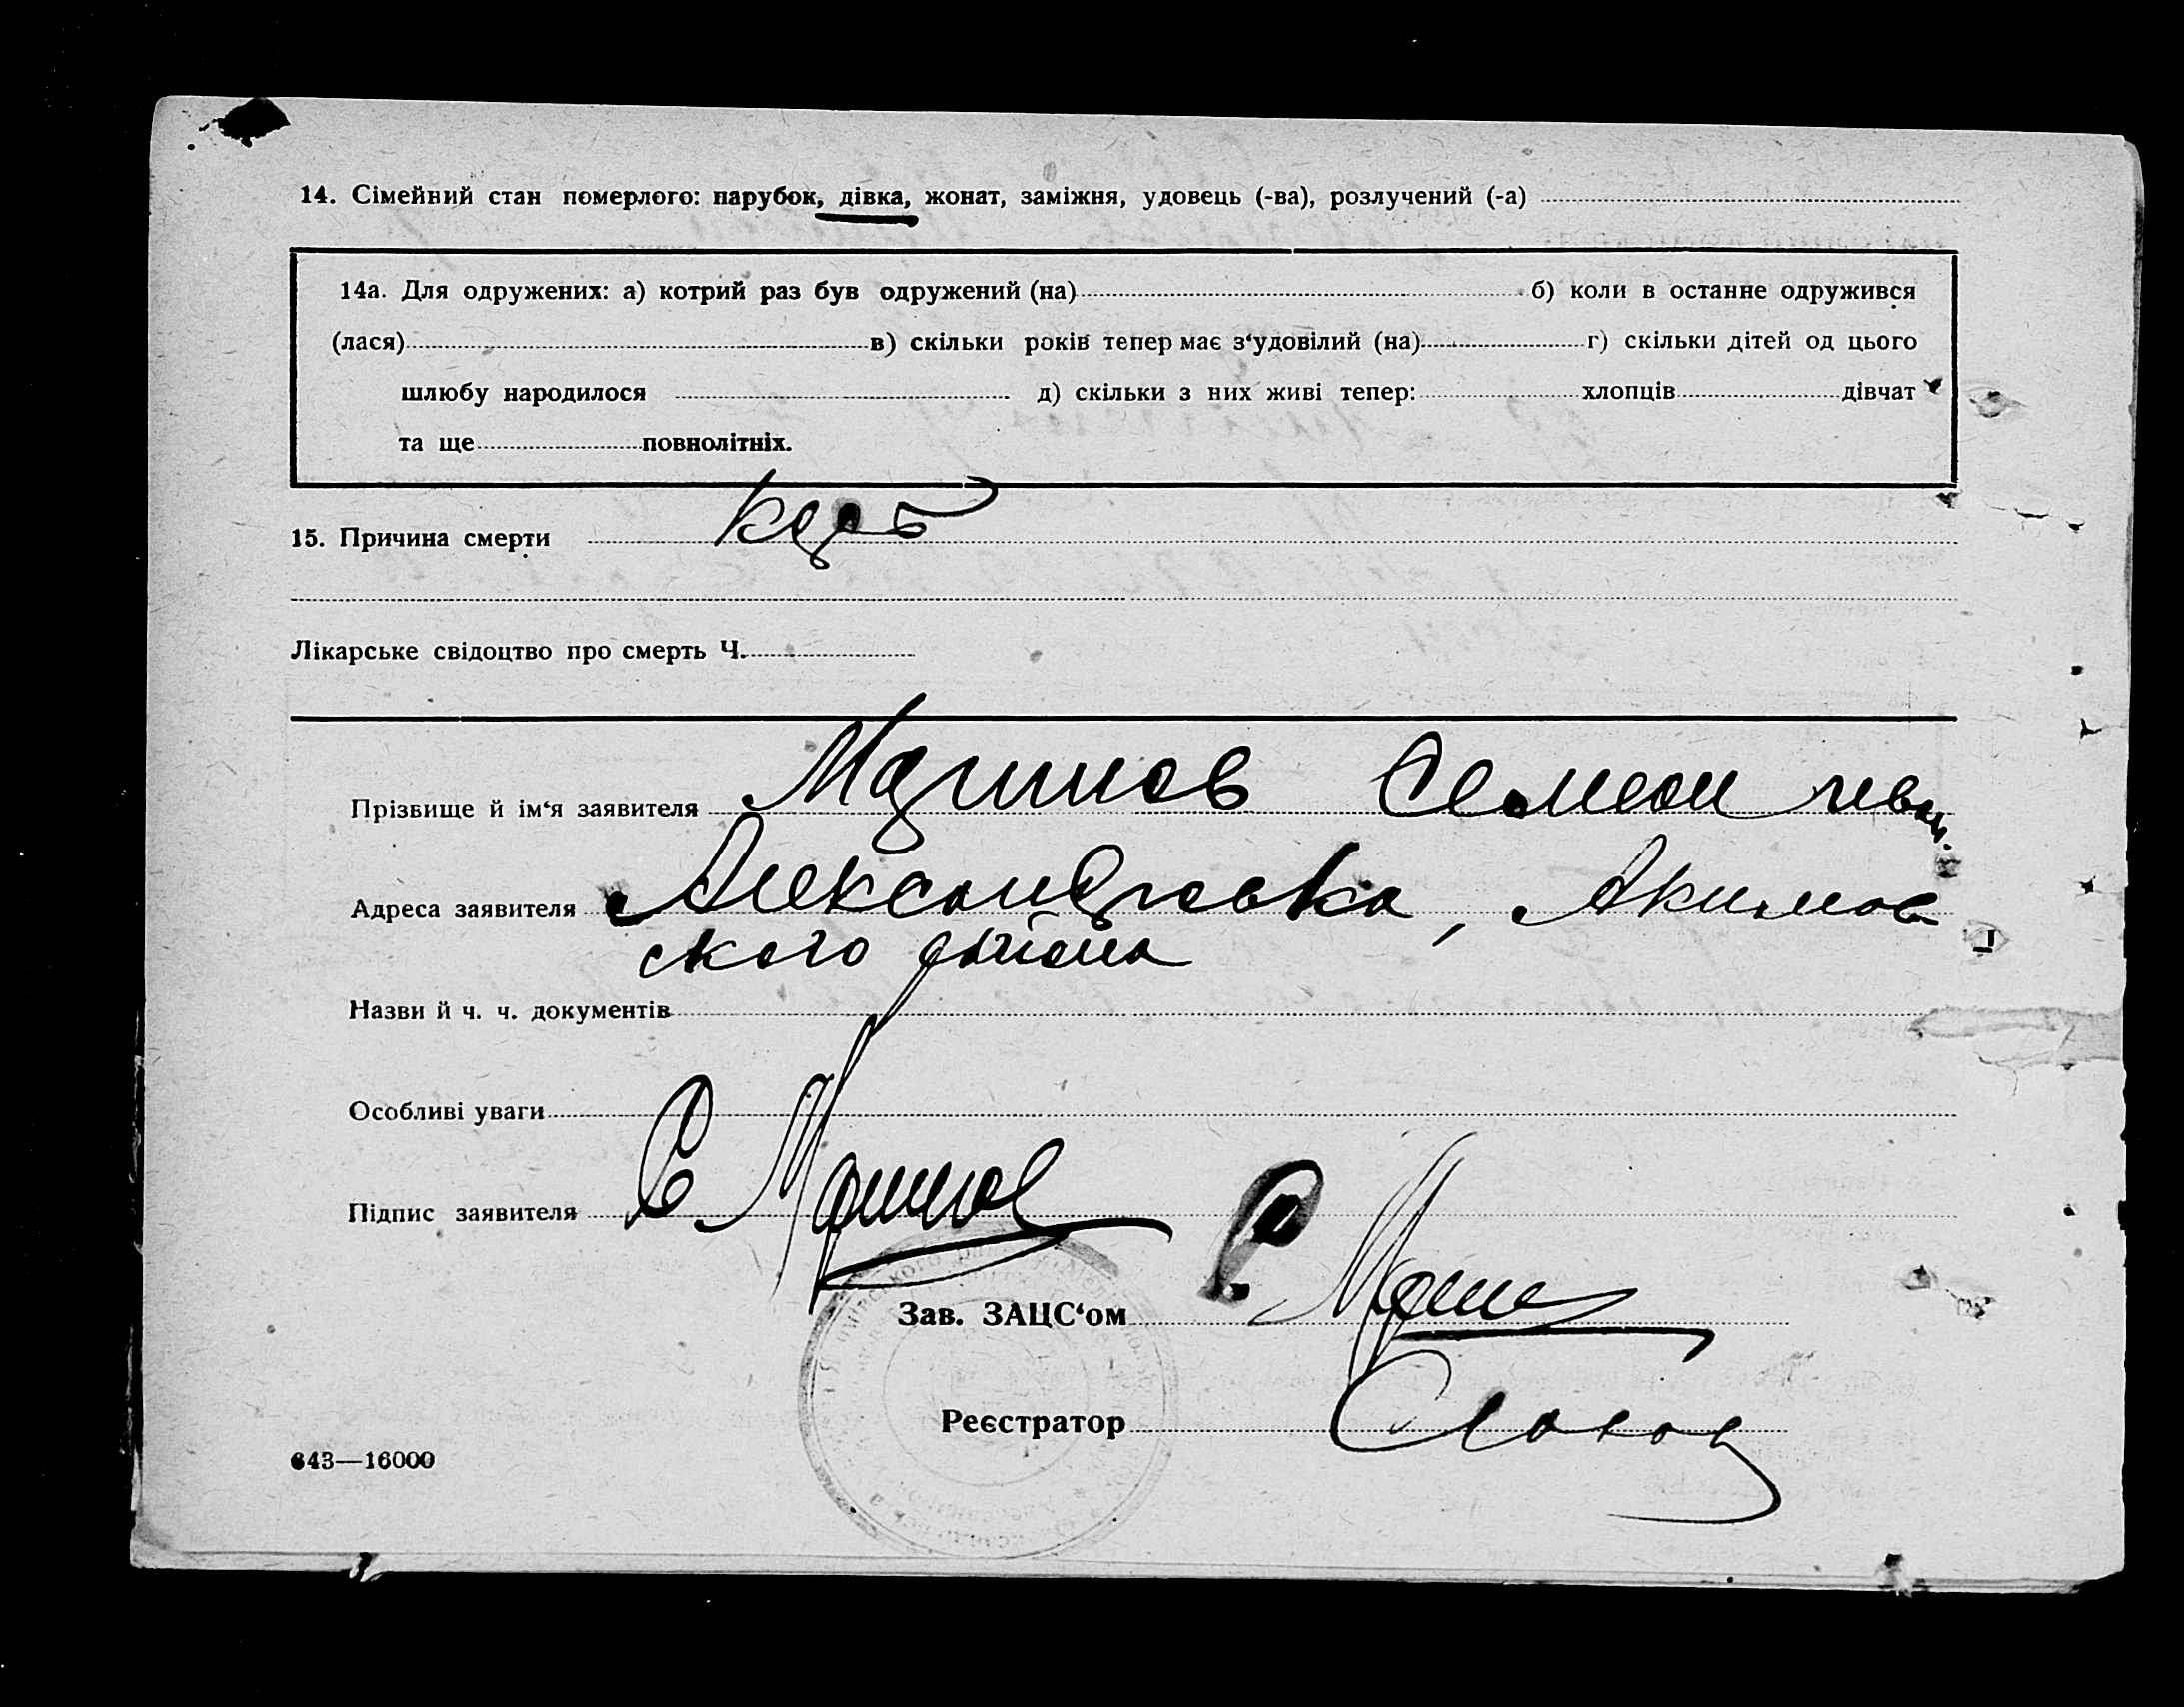 14. Сімейний стан померлого: парубок, дівка, жонат, заміжня, удовець (-ва), розлучений (-а)
14а. Для одружених: а) котрий раз був одружений (на) б) коли в останне одружився
(лася) в) скільки років тепер має з‘удовілий (на) г) скільки дітей од цього
шлюбу народилося д) скільки з них живі тепер: хлопців дівчат
та ще повнолітніх.
15. Причина смерти корь
Лікарське свідоцтво про смерть Ч.
Прізвище й ім‘я заявителя Маринов Семеон
Адреса заявителя Александровка, Акимов
ского района
Назви й ч. ч. документів
Особливі уваги
Підпис заявителя С Маринов
Зав. ЗАЦС‘ом
Реєстратор
643—16000